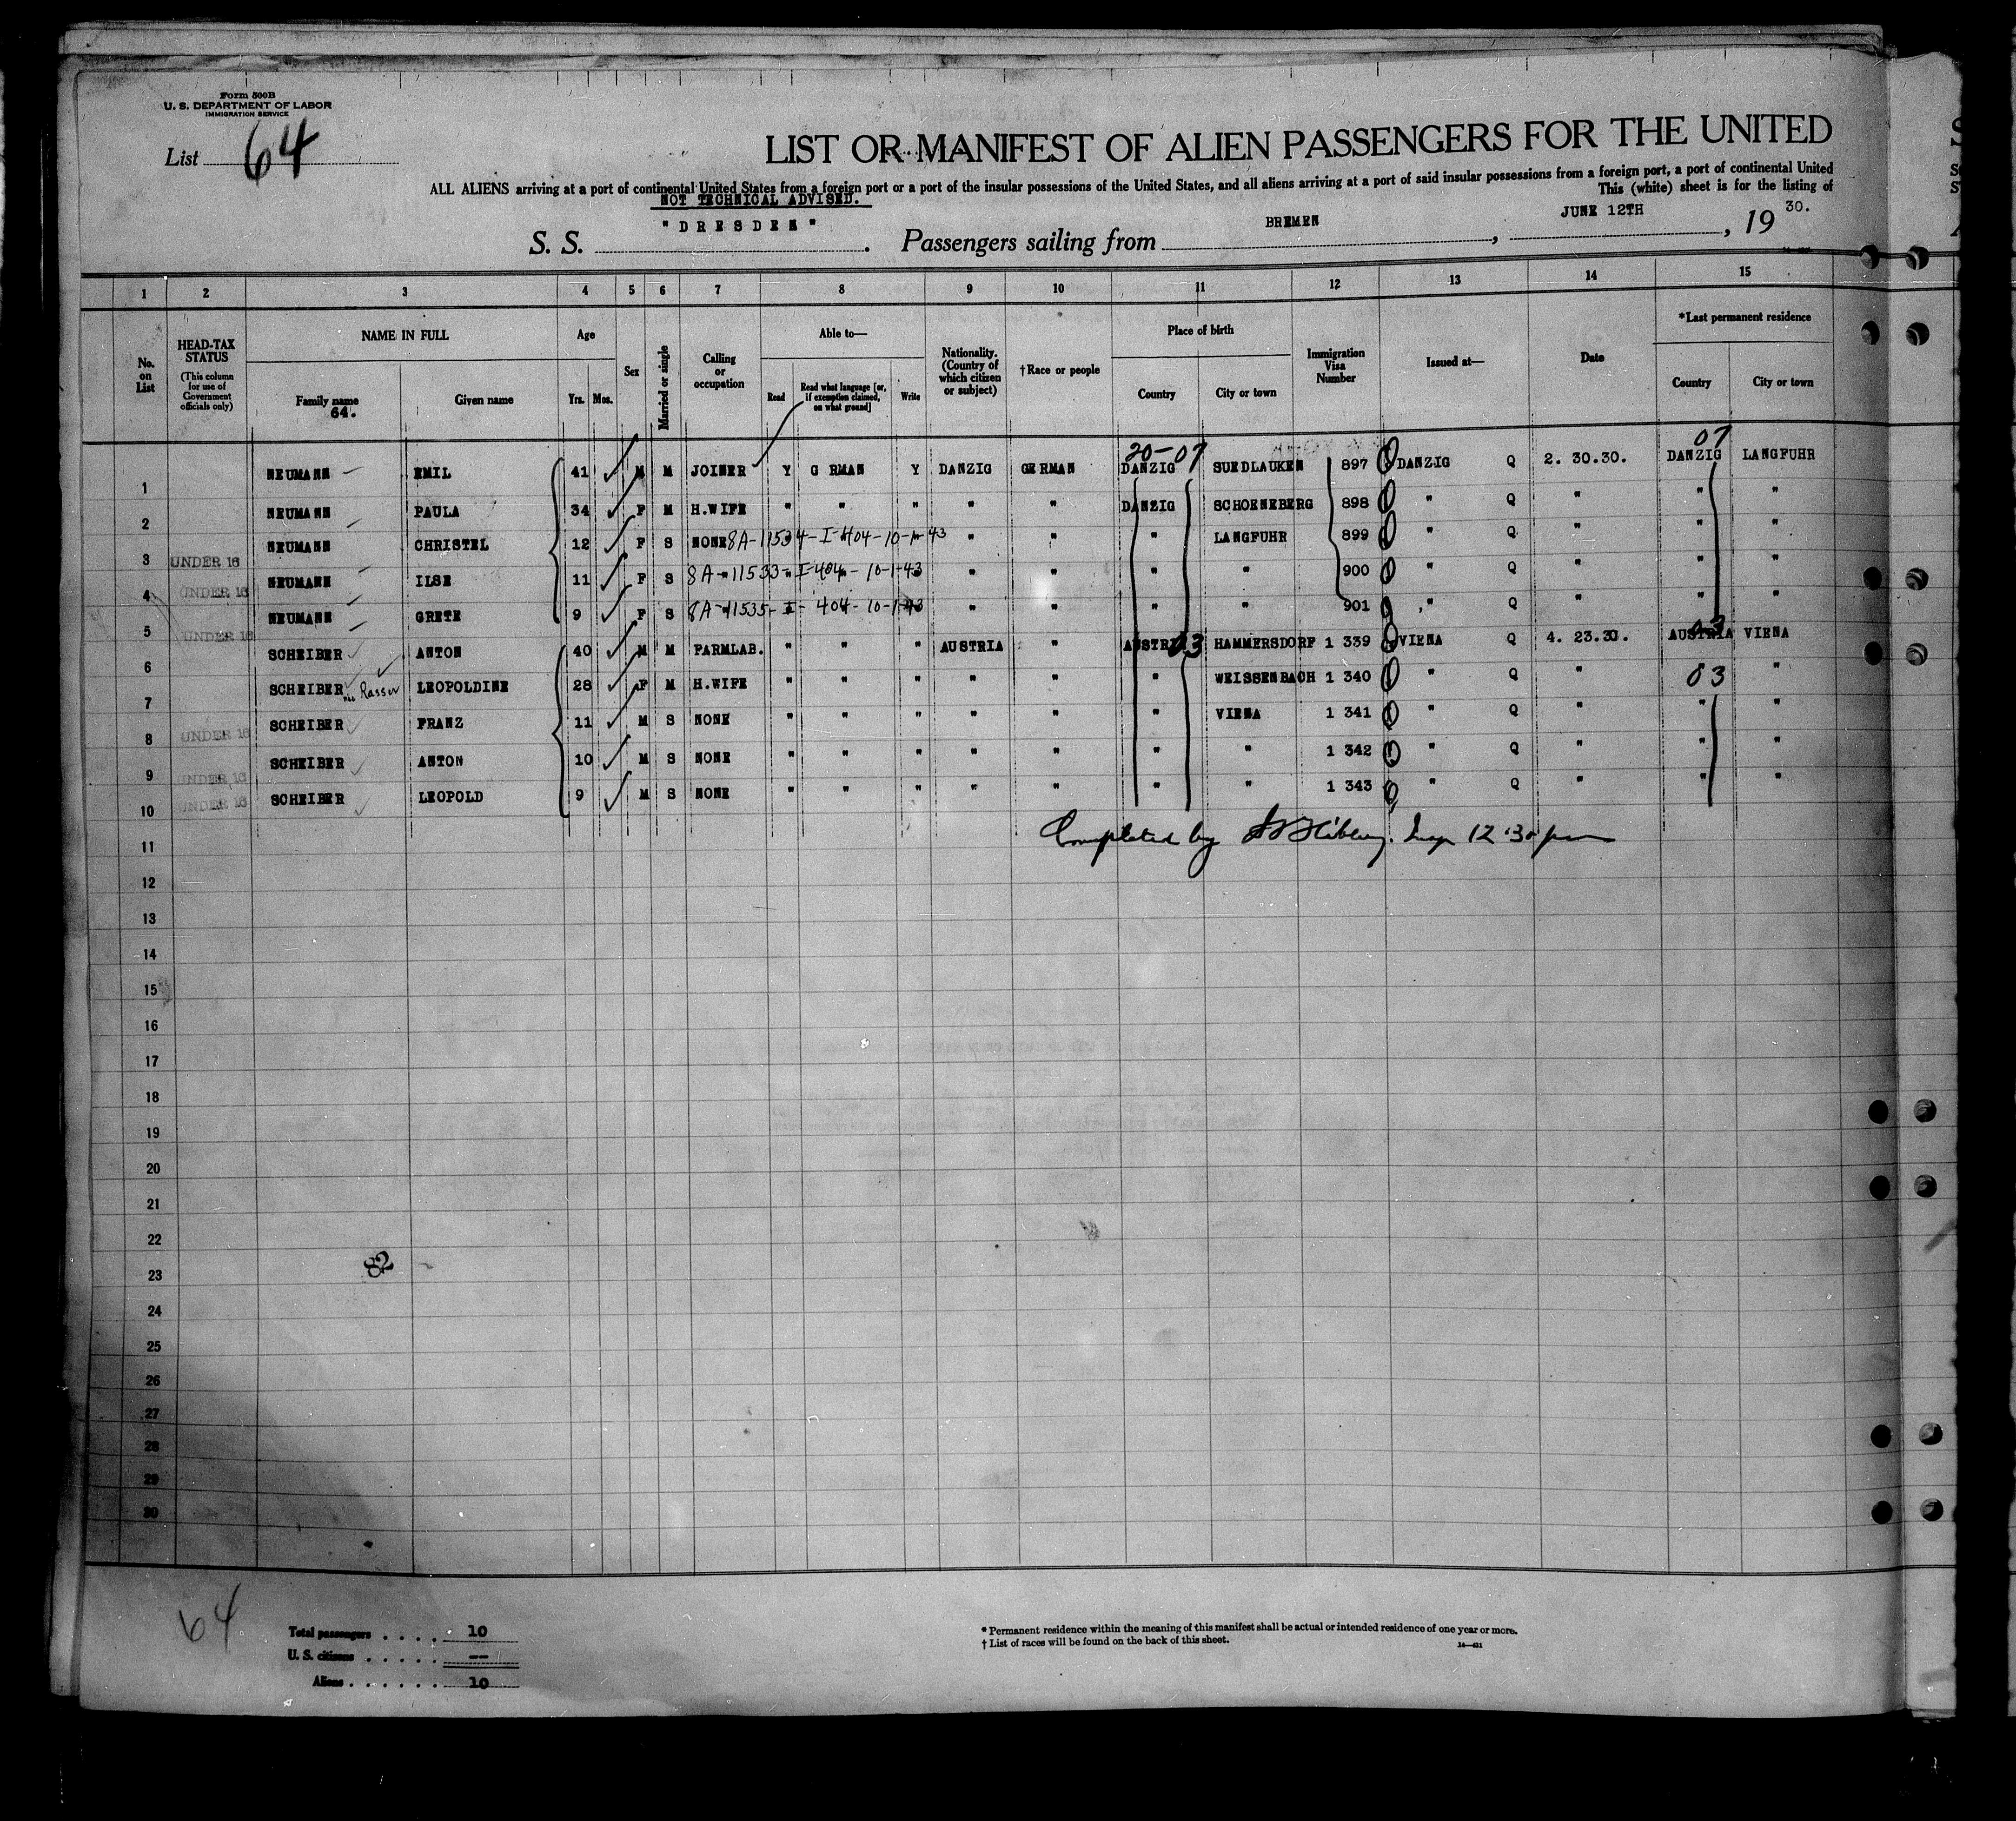 Form 500B
U. S. DEPARTMENT OF LABOR
IMMIGRATION SERVICE
List 64
LIST OR MANIFEST OF ALIEN PASSENGERS FOR THE UNITED
ALL ALIENS arriving at a port of continental United States from a foreign port or a port of the insular possessions of the United States, and all aliens arriving at a port of said insular possessions from a foreign port, a port of continental United
This (white) sheet is for the listing of
NOT TECHNICAL ADVISED.
S. S. "DRESDEN". Passengers sailing from BREMEN, JUNE 12TH, 19 30.
1 2 3 4 5 6 7 8 9 10 11 12 13 14 15
No. on List
HEAD-TAX STATUS
(This column for use of Government officials only)
NAME IN FULL
Family name
64.
Given name
Age
Yrs. Mos.
Sex
Married or single
Calling or occupation
Able to—
Read
Read what language [or, if exemption claimed, on what ground]
Write
Nationality. (Country of which citizen or subject)
†Race or people
Place of birth
Country
City or town
Immigration Visa Number
Issued at—
Date
*Last permanent residence
Country
City or town
20-07 07
1 NEUMANN EMIL 41 M M JOINER Y G RMAN Y DANZIG GERMAN DANZIG SUEDLAUKEN 897 DANZIG Q 2. 30.30. DANZIG LANGFUHR
2 NEUMANN PAULA 34 F M H.WIFE " " " " " DANZIG SCHOENEBERG 898 " Q " " "
3 UNDER 16 NEUMANN CHRISTEL 12 F S NONE 8A-11534-I-404-10-1-43 " " " LANGFUHR 899 " Q " " "
4 UNDER 16 NEUMANN ILSE 11 F S 8A-11533-I-404-10-1-43 " " " " 900 " Q " " "
5 UNDER 16 NEUMANN GRETE 9 F S 8A-11535-I-404-10-1-43 " " " " 901 " Q " " "
6 SCHEIBER ANTON 40 M M FARMLAB. " " " AUSTRIA " AUSTRIA 03 HAMMERSDORF 1 339 VIENA Q 4. 23.30. AUSTRIA 03 VIENA
7 SCHEIBER née Rasser LEOPOLDINE 28 F M H.WIFE " " " " " " WEISSENBACH 1 340 " Q " 03 "
8 UNDER 16 SCHEIBER FRANZ 11 M S NONE " " " " " " VIENA 1 341 " Q " " "
9 UNDER 16 SCHEIBER ANTON 10 M S NONE " " " " " " " 1 342 " Q " " "
10 UNDER 16 SCHEIBER LEOPOLD 9 M S NONE " " " " " " " 1 343 " Q " " "
Completed by 12:30 pm
11
12
13
14
15
16
17
18
19
20
21
22
82
23
24
25
26
27
28
29
30
64
Total passengers . . . . 10
U. S. citizens . . . . . —
Aliens . . . . . . 10
* Permanent residence within the meaning of this manifest shall be actual or intended residence of one year or more.
† List of races will be found on the back of this sheet.